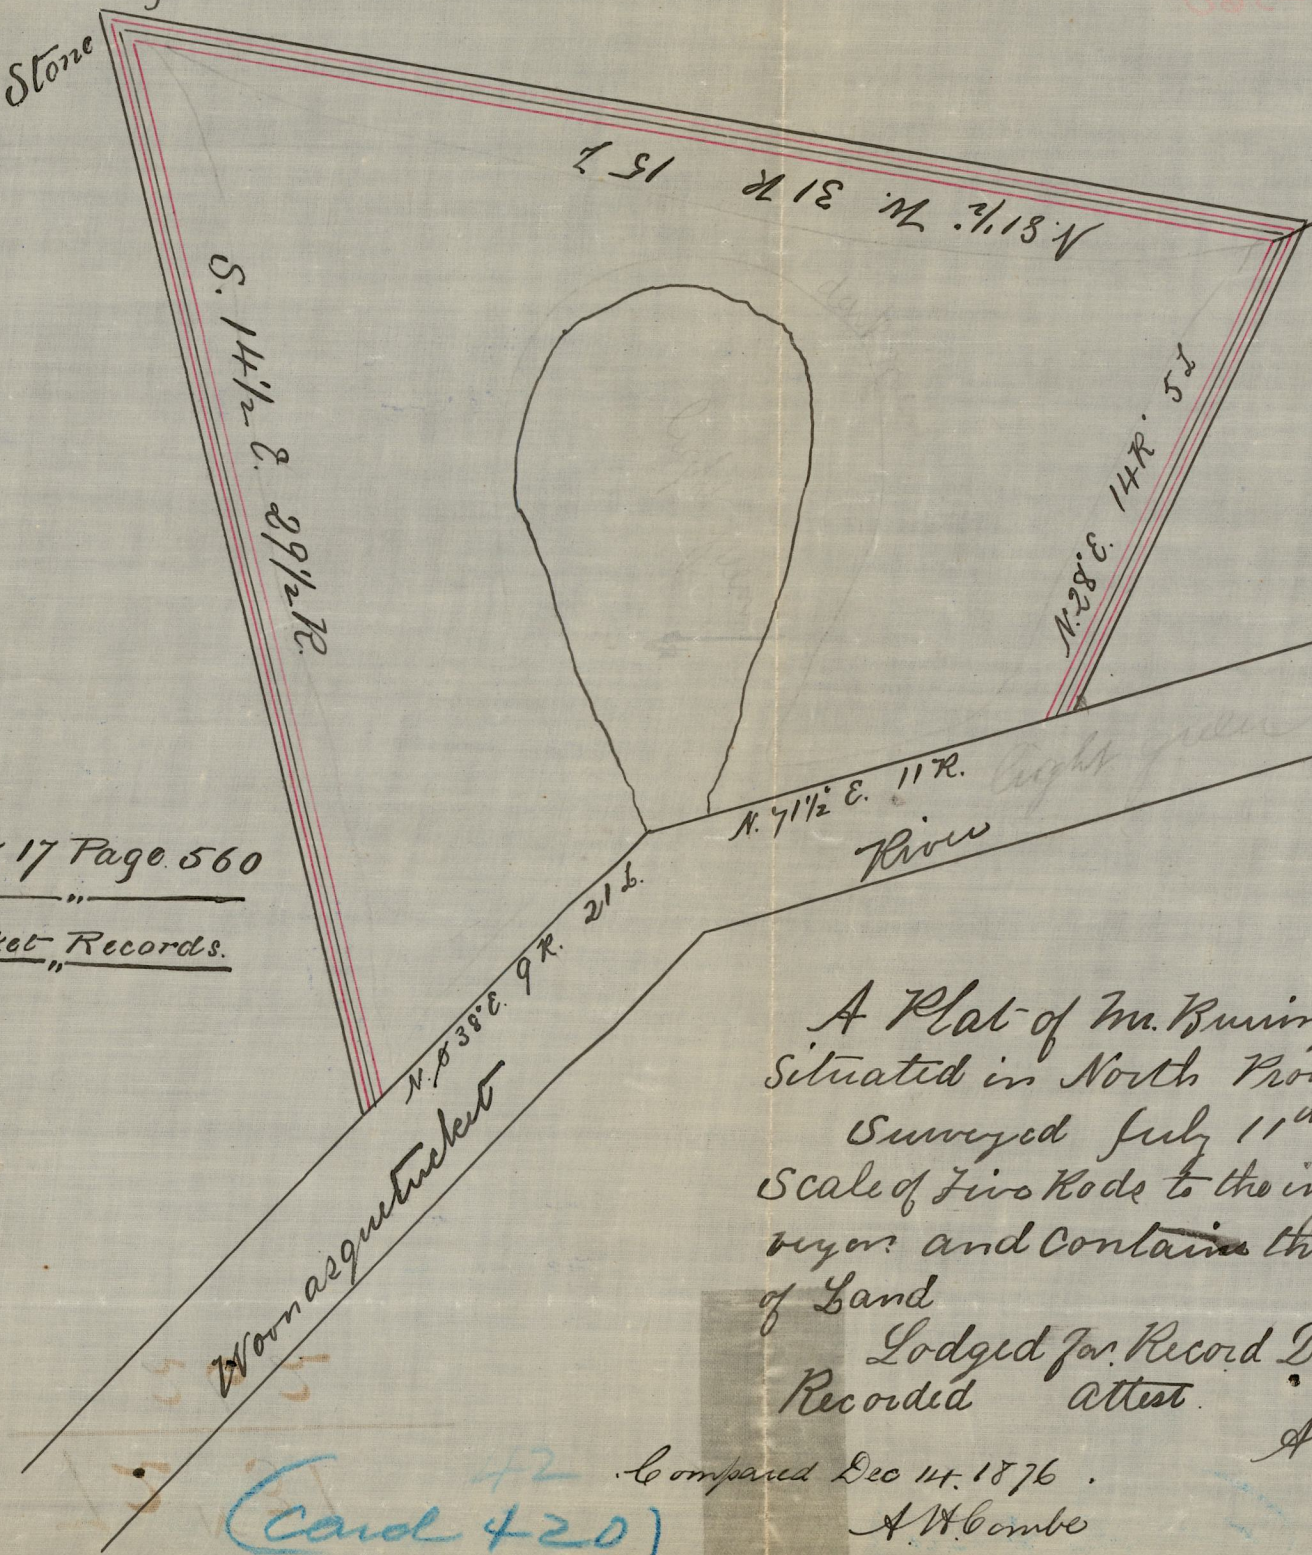 Stone
N. 81½° W. 31 R 15 L
S. 14½ E. 29½ R.
N. 28° E. 14 R 5 L
N. 71½° E. 11 R.
light
River
N. 38° E. 9 R. 21 L.
Woonasquetucket
17 Page 560
„
ket „ Records.
A Plat of Mr.
Situated in North Pro
Surveyed July 11th
Scale of Five Rods to the in
veyor and Contains th
of Land
Lodged for Record D
Recorded attest.
A
Compared Dec 14. 1876.
A H Combe
42
(Card 420)